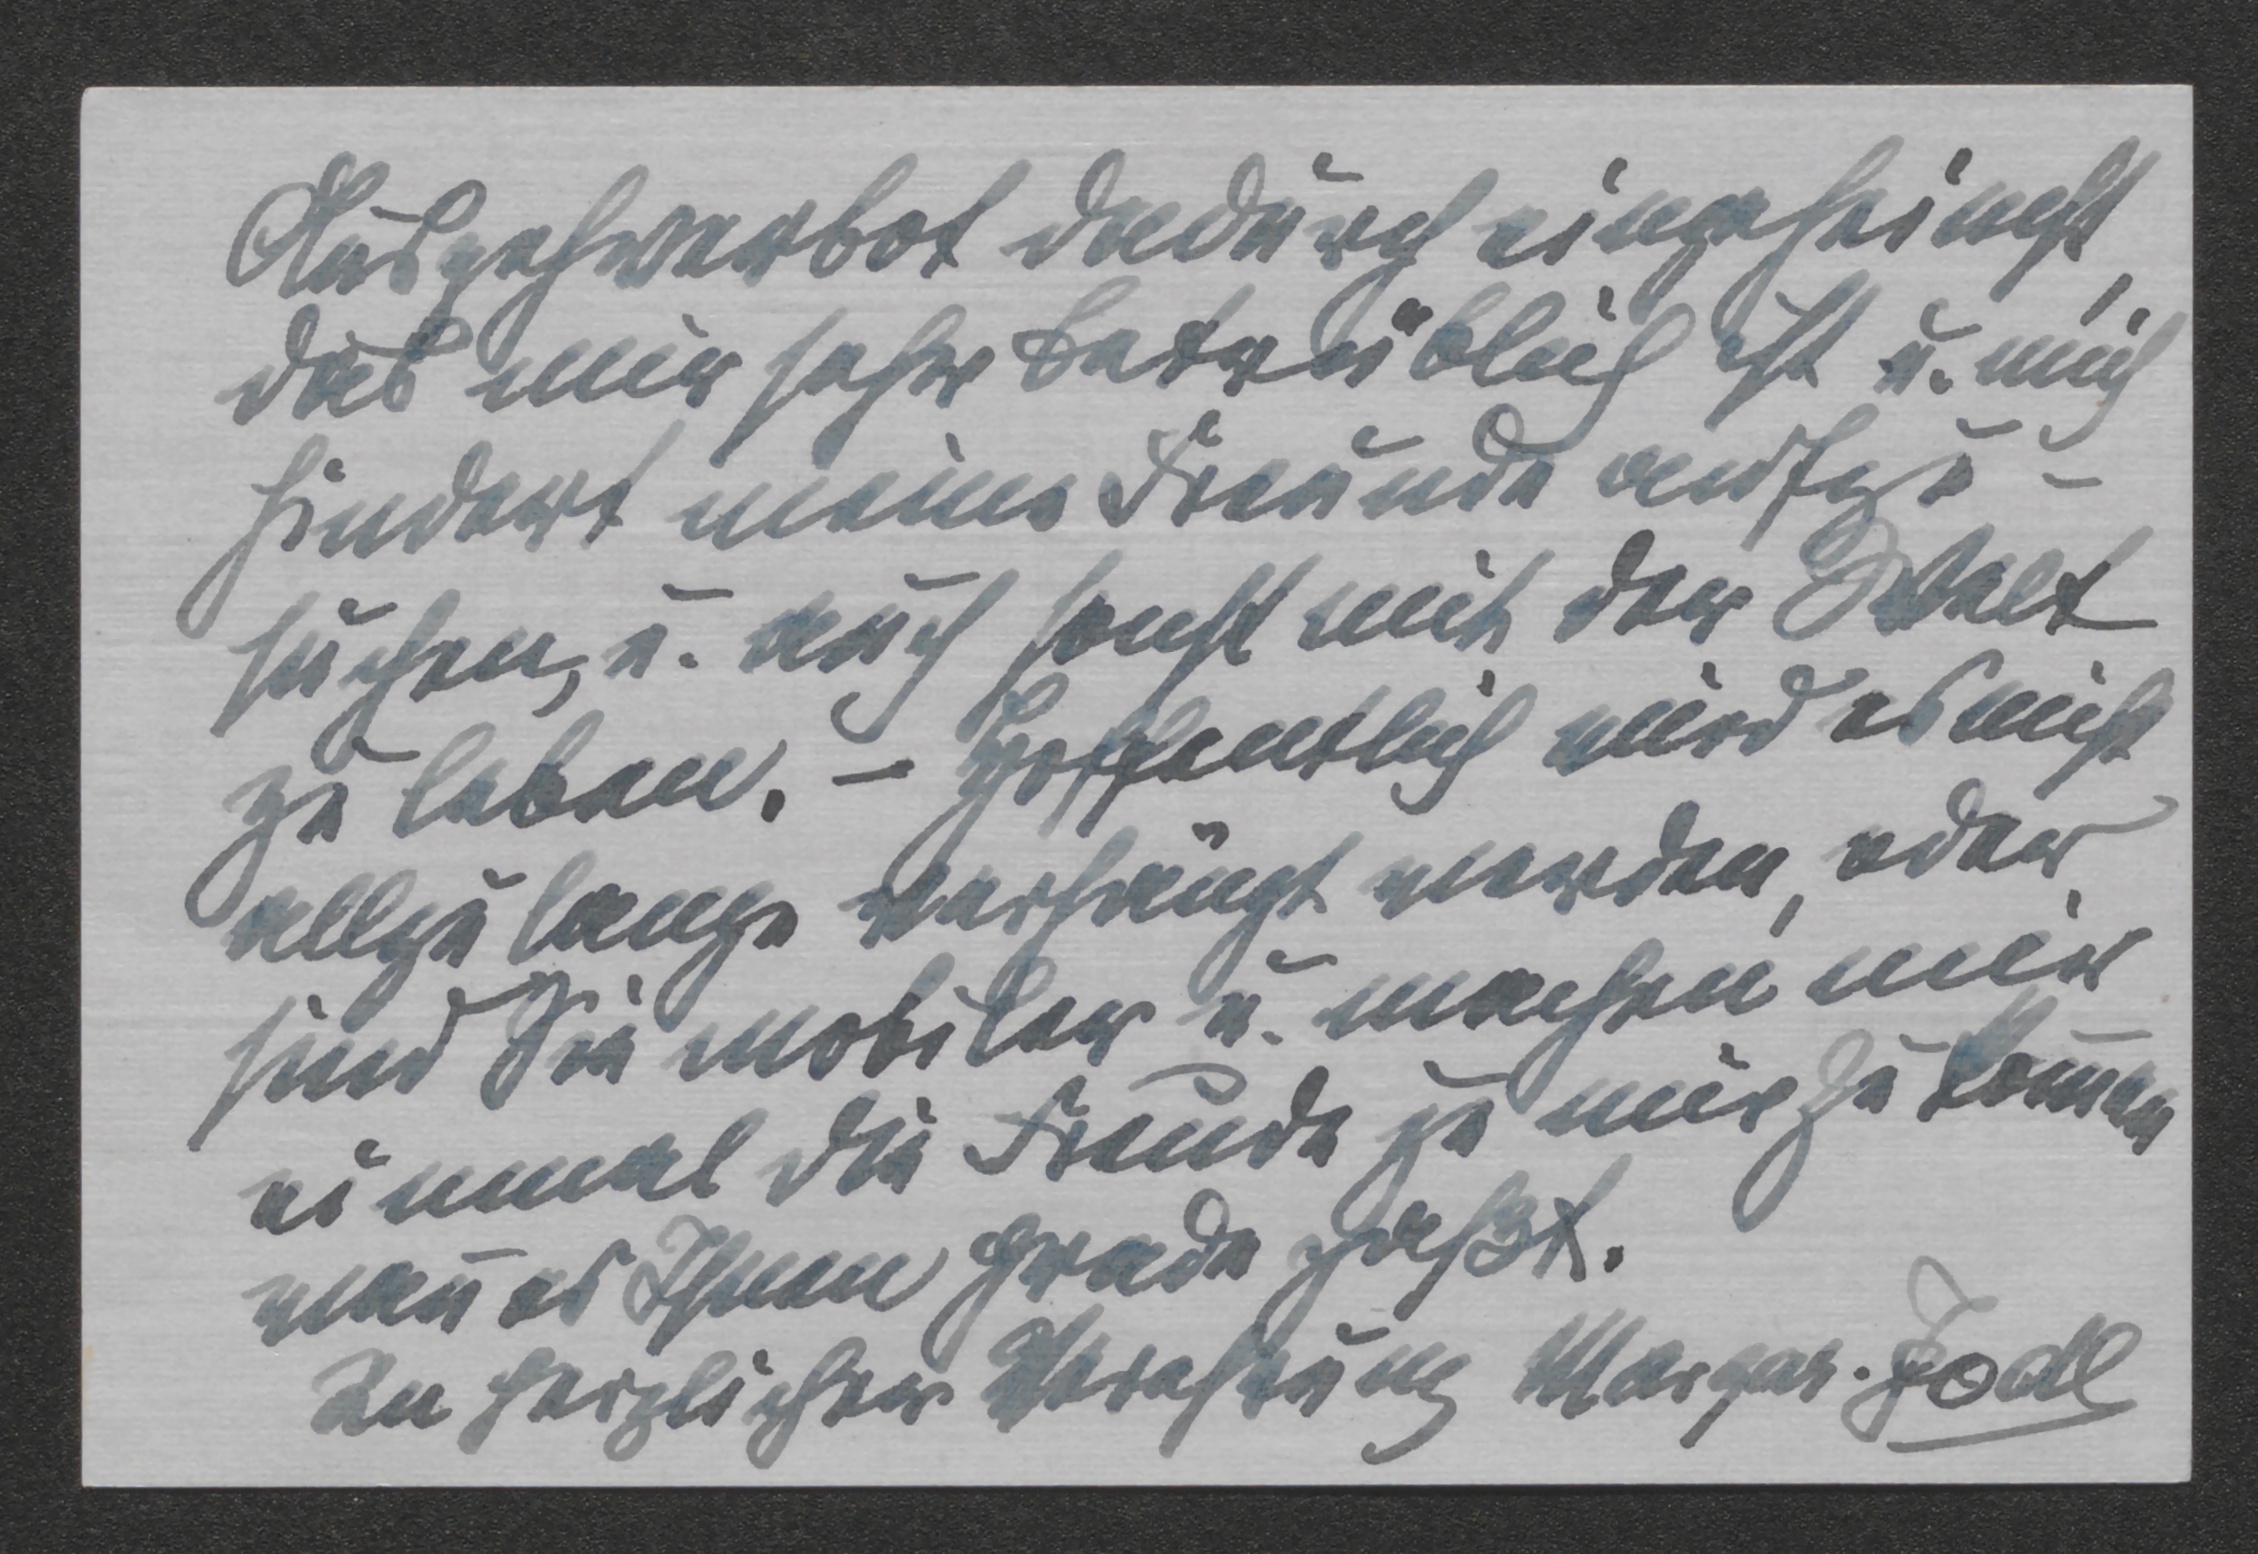 Ausgehverbot dadurch eingeheimst,
das mir sehr betrüblich ist u. mich
hindert meine Freunde aufzu-
suchen, u. auch sonst mit der Welt
zu leben. – Hoffentlich wird es nicht
allzulange verhängt werden, oder
sind Sie mobiler u. machen mir
einmal die Freude zu mir zu kom̄en
wan̄ es Ihnen grade paßt.
In herzlicher Verehrung Margar. Jodl